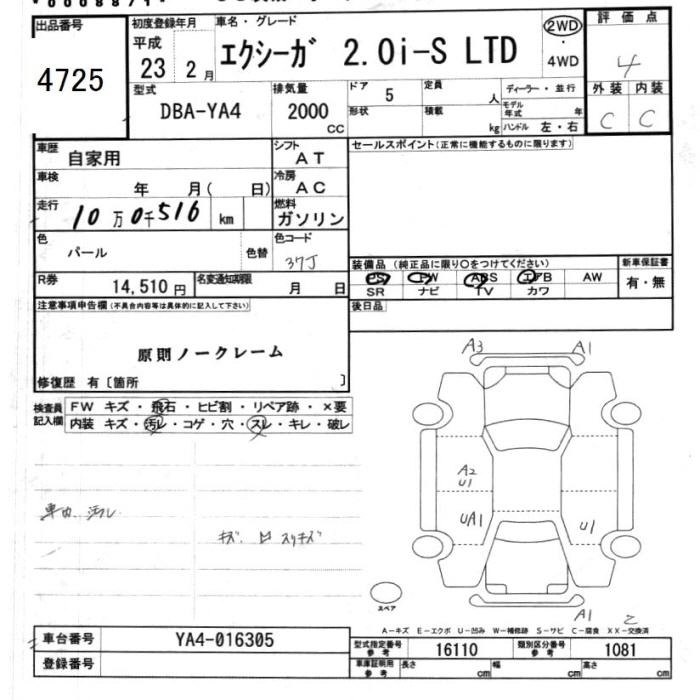 出品番号 初度登録年月 車名・グレード 2WD 評価点
4725 平成 エクシーガ 2.0i-S LTD ・ 4
23 2月 4WD
型式 排気量 ドア 5 定員 人 ディーラー・並行 外装 内装
DBA-YA4 2000 cc 形状 積載 kg モデル年式 年 C C
ハンドル 左・右
車歴 自家用 シフト AT セールスポイント(正常に機能するものに限ります)
車検 年 月( 日) 冷房 AC
走行 10万0千516 km 燃料 ガソリン
色 パール 色替 色コード 37J 装備品 (純正品に限り〇をつけてください) 新車保証書
PS PW ABS エアB AW 有・無
R券 14,510円 名変通知期限 月 日 SR ナビ TV カワ
注意事項申告欄(不具合内容等は具体的に記入して下さい) 後日品
原則ノークレーム A3 A1
修復歴 有〔箇所 〕
検査員 FW キズ・飛石・ヒビ割・リペア跡・×要
記入欄 内装 キズ・汚レ・コゲ・穴・スレ・キレ・破レ
A2
U1
車内 汚レ UA1 U1
キズ. スリキズ
スペア A1 2
A-キズ E-エクボ U-凹み W-補修跡 S-サビ C-腐食 XX-交換済
車台番号 YA4-016305 型式指定番号 参考 16110 類別区分番号 参考 1081
登録番号 車庫証明用 参考 長さ cm 幅 cm 高さ cm